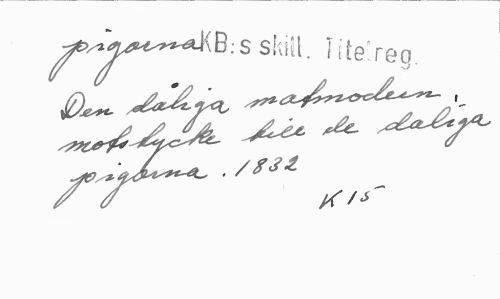 pigorna KB:s skill. Titelreg.
Den dåliga matmodern,
motstycke till de dåliga
pigorna. 1832
K 15